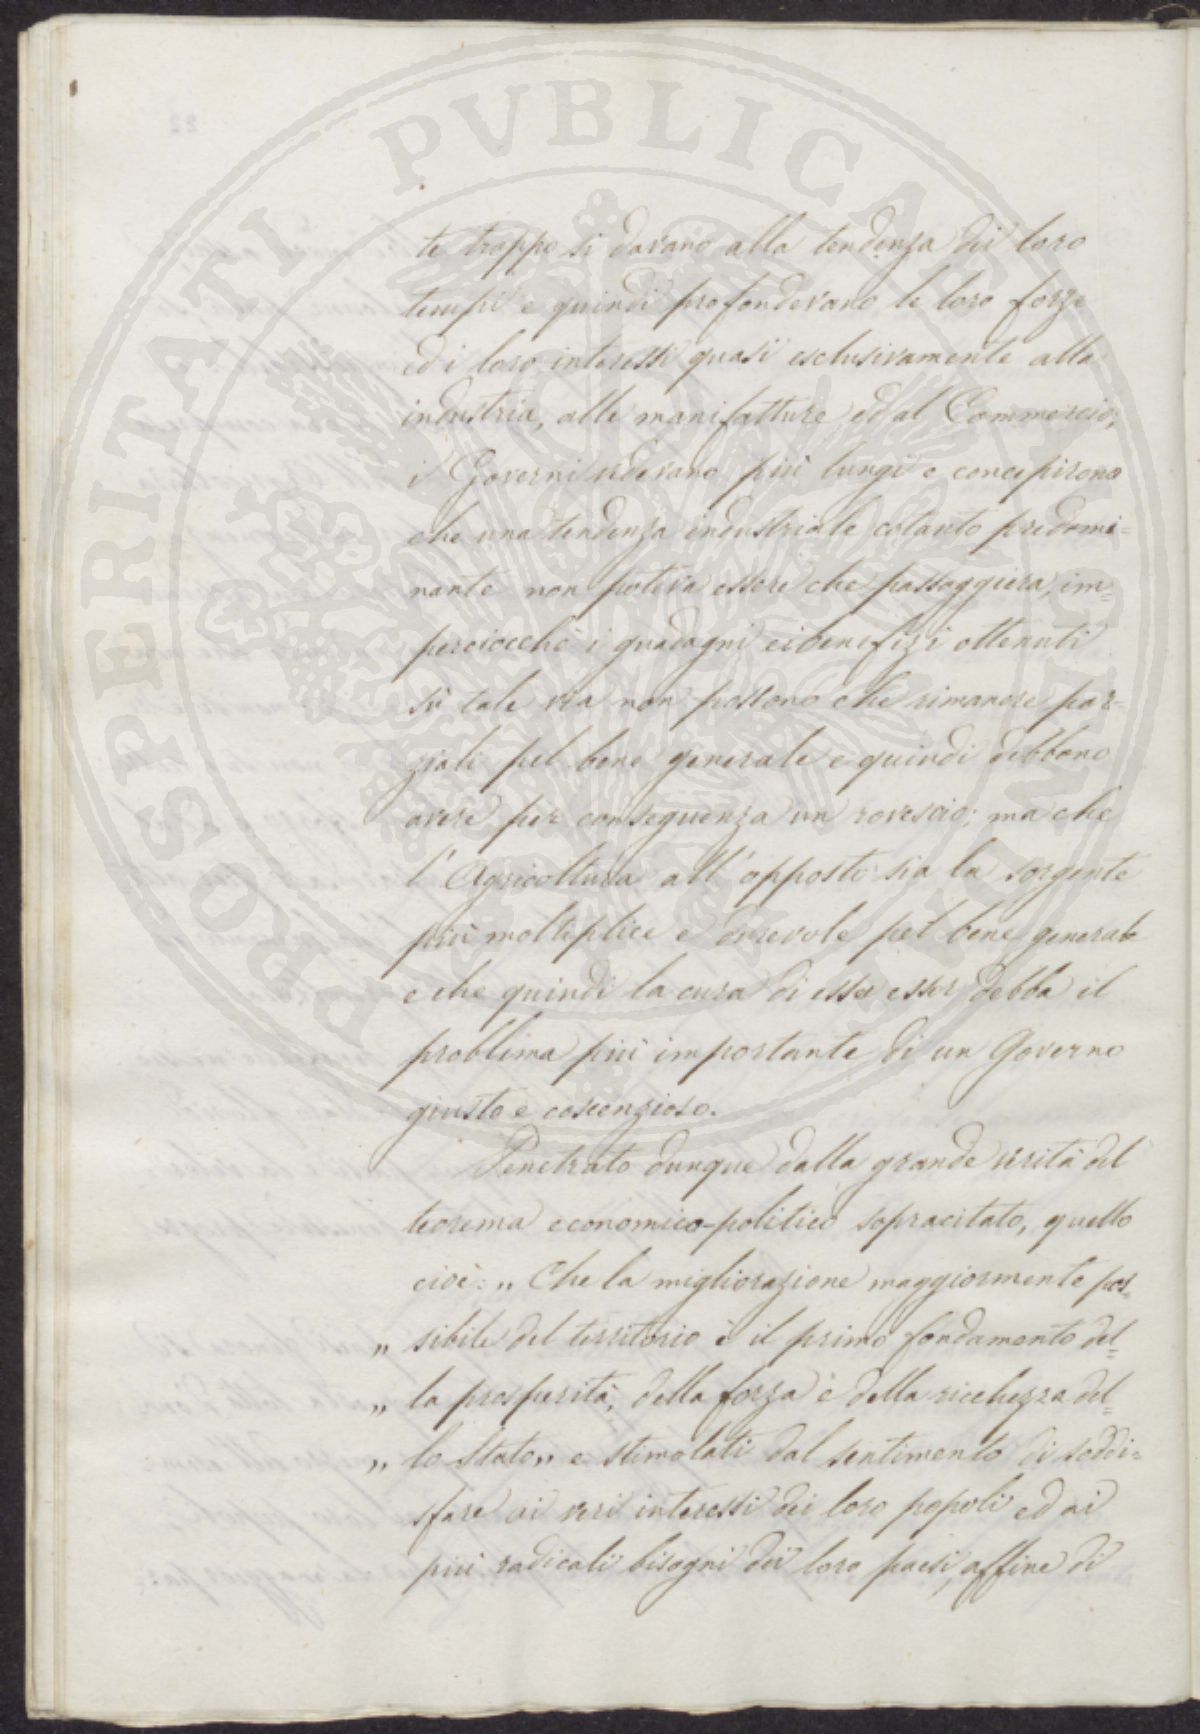 PROSPERITATI PVBLICAE AVGENDAE
te troppo si davano alla tendenza dei loro
tempi e quindi profondevano le loro forze
ed i loro interessi quasi esclusivamente alla
industria, alle manifatture ed al Commercio;
i Governi videvano più lungi e concepirono
che una tendenza industriale cotanto predomi-
nante non poteva essere che passaggiera, im=
perciocchè i guadagni ei benefizi ottenuti
su tale via non possono che rimanere par=
ziali pel bene generale e quindi debbono
avere per conseguenza un rovescio; ma che
l'Agricoltura all'opposto sia la sorgente
più moltiplice e durevole pel bene generale
e che quindi la cura di essa esser debba il
problema più importante di un Governo
giusto e coscenzioso.
Penetrato dunque dalla grande verità del
teorema economico-politico sopracitato, quello
cioè: „ Che la migliorazione maggiormente pos=
„ sibile del territorio è il primo fondamento del=
„ la prosperità, della forza e della ricchezza del=
„ lo Stato „ e stimolati dal sentimento di soddi=
sfare ai veri interessi dei loro popoli ed ai
più radicali bisogni dei loro paesi, affine di